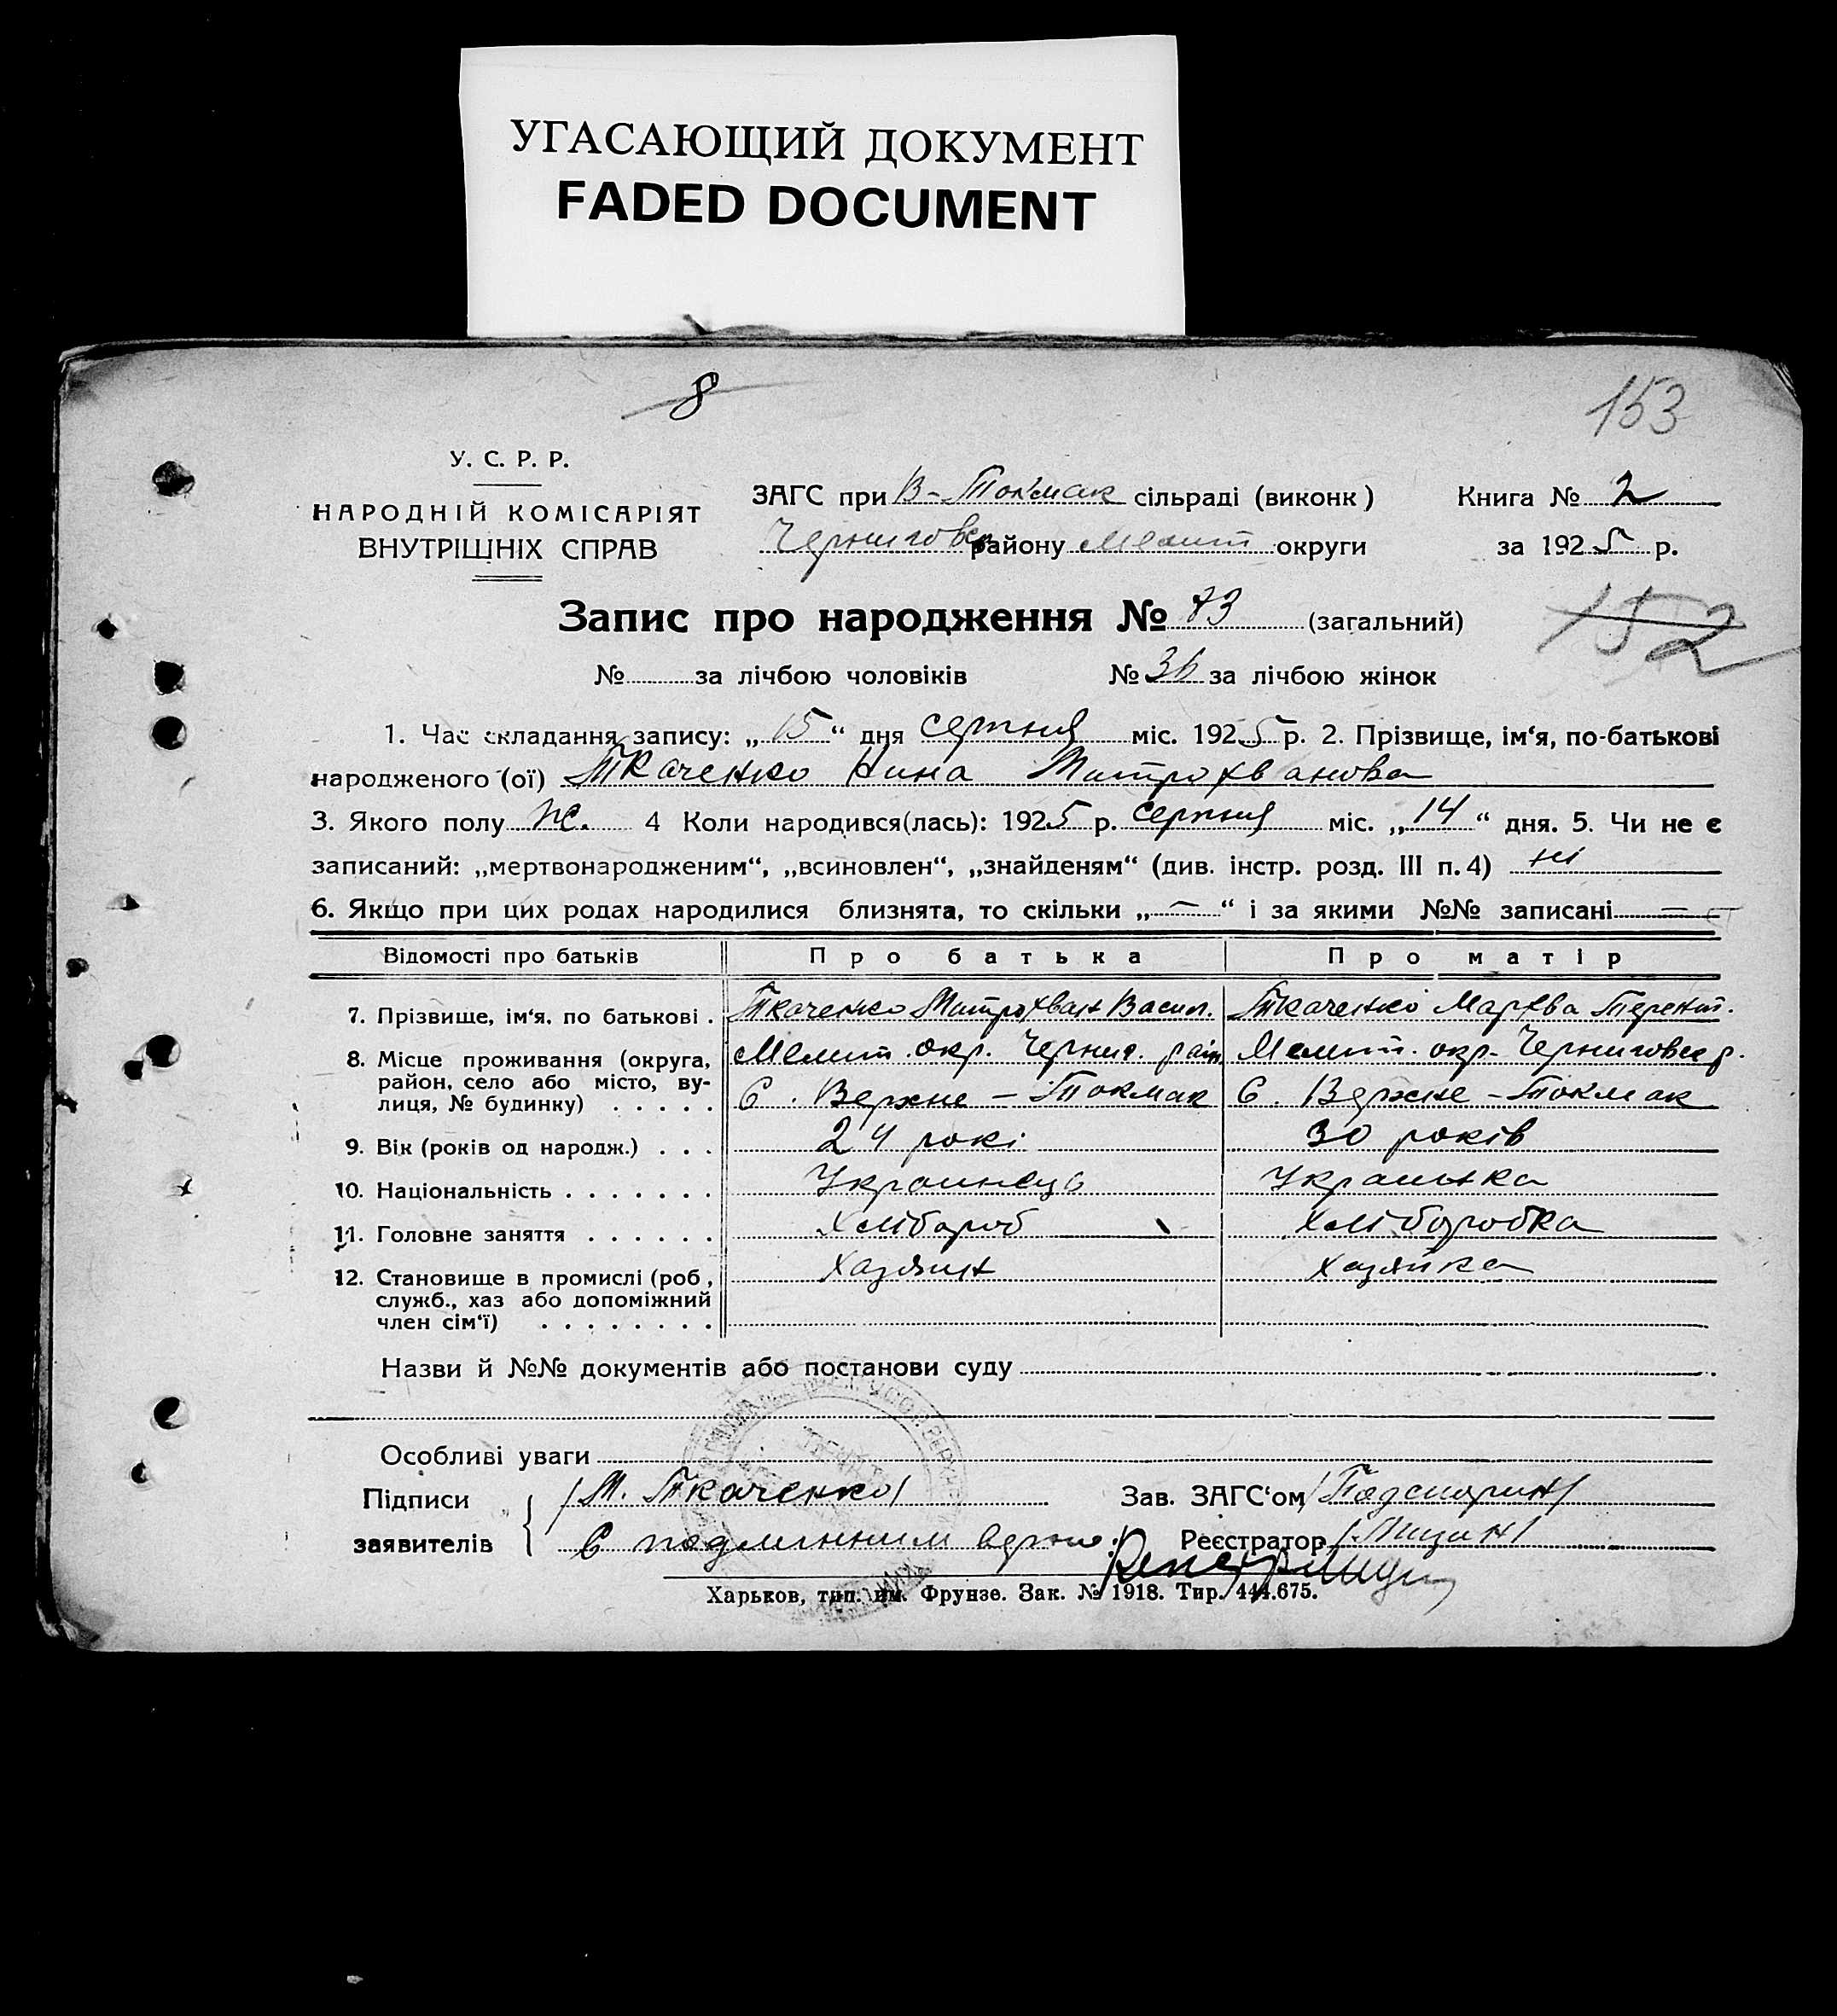 УГАСАЮЩИЙ ДОКУМЕНТ
FADED DOCUMENT
8
153
У. С. Р. Р.
НАРОДНІЙ КОМІСАРІЯТ
ВНУТРІШНІХ СПРАВ
ЗАГС при В-Токмак сільраді (виконк)
Черниговск району Мелит округи
Книга № 2
за 1925 р.
Запис про народження № 73 (загальний)
152
№ за лічбою чоловіків № 36 за лічбою жінок
1. Час складання запису: „15“ дня серпня міс. 1925 р. 2. Прізвище, ім‘я, по-батькові
народженого (ої) Ткаченко Нина Митрохванова
3. Якого полу ж. 4 Коли народився(лась): 1925 р. серпня міс. „14“ дня. 5. Чи не є
записаний: „мертвонародженим“, „всиновлен“, „знайденям“ (див. інстр. розд. III п. 4) ні
6. Якщо при цих родах народилися близнята, то скільки „—“ і за якими №№ записані —
Відомості про батьків Про батька Про матір
7. Прізвище, ім‘я, по батькові . Ткаченко Митрохван Васил. Ткаченко Мархва Терент.
8. Місце проживання (округа, Мелит. окр. Черниг. райн Мелит. окр. Черниговск р.
район, село або місто, ву-
лиця, № будинку) . . . . . С. Верхне - Токмак С. Верхне - Токмак
9. Вік (років од народж.) . . . 24 рокі 30 років
10. Національність . . . . . . . Украинець Украинка
11. Головне заняття . . . . . . Хлібароб Хліборобка
12. Становище в промислі (роб, Хазяин Хазяйка
служб., хаз або допоміжний
член сім‘ї) . . . . . . . .
Назви й №№ документів або постанови суду
Особливі уваги
Підписи /М. Ткаченко/ Зав. ЗАГС‘ом
заявителів С подлинним верно: Реєстратор
Харьков, тип. им. Фрунзе. Зак. № 1918. Тир. 444.675.